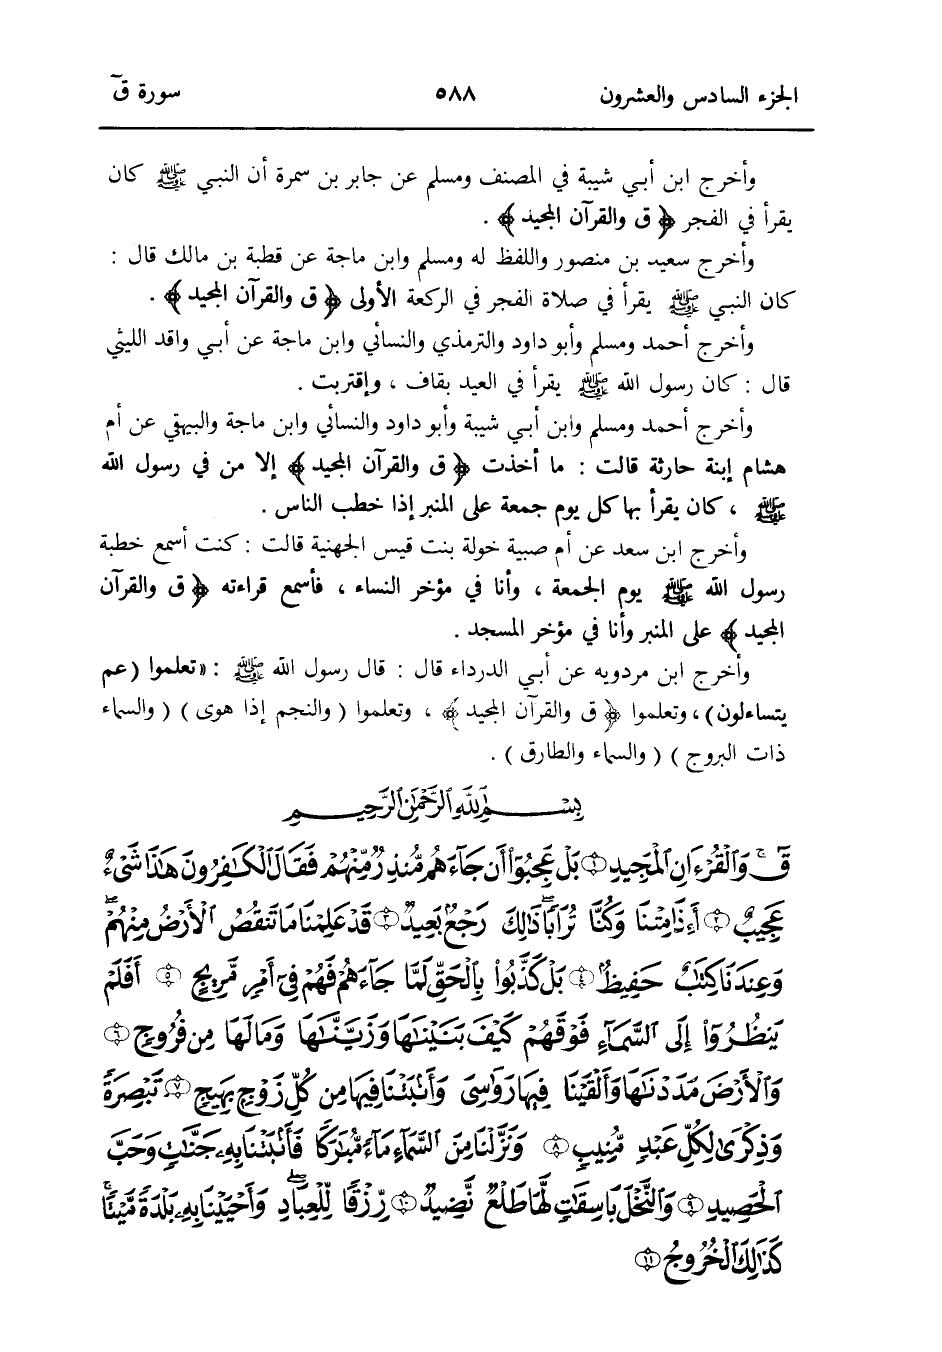 الجزء السادس والعشرون ٥٨٨ سورة قٓ
وأخرج ابن أبي شيبة في المصنف ومسلم عن جابر بن سمرة أن النبي ﷺ كان
يقرأ في الفجر ﴿ ق والقرآن المجيد ﴾ .
وأخرج سعيد بن منصور واللفظ له ومسلم وابن ماجة عن قطبة بن مالك قال :
كان النبي ﷺ يقرأ في صلاة الفجر في الركعة الأولى ﴿ ق والقرآن المجيد ﴾ .
وأخرج أحمد ومسلم وأبو داود والترمذي والنسائي وابن ماجة عن أبي واقد الليثي
قال : كان رسول الله ﷺ يقرأ في العيد بقاف ، وإقتربت .
وأخرج أحمد ومسلم وابن أبي شيبة وأبو داود والنسائي وابن ماجة والبيهقي عن أم
هشام إبنة حارثة قالت : ما أخذت ﴿ ق والقرآن المجيد ﴾ إلا من في رسول الله
ﷺ ، كان يقرأ بها كل يوم جمعة على المنبر إذا خطب الناس .
وأخرج ابن سعد عن أم صبية خولة بنت قيس الجهنية قالت : كنت أسمع خطبة
رسول الله ﷺ يوم الجمعة ، وأنا في مؤخر النساء ، فأسمع قراءته ﴿ ق والقرآن
المجيد ﴾ على المنبر وأنا في مؤخر المسجد .
وأخرج ابن مردويه عن أبي الدرداء قال : قال رسول الله ﷺ : «تعلموا (عم
يتساءلون) ، وتعلموا ﴿ ق والقرآن المجيد ﴾ ، وتعلموا ( والنجم إذا هوى ) ( والسماء
ذات البروج ) ( والسماء والطارق ) .
بِسْمِ ٱللَّهِ ٱلرَّحْمَٰنِ ٱلرَّحِيمِ
قٓ ۚ وَٱلْقُرْءَانِ ٱلْمَجِيدِ ﴿١﴾ بَلْ عَجِبُوٓا۟ أَن جَآءَهُم مُّنذِرٌ مِّنْهُمْ فَقَالَ ٱلْكَٰفِرُونَ هَٰذَا شَىْءٌ
عَجِيبٌ ﴿٢﴾ أَءِذَا مِتْنَا وَكُنَّا تُرَابًا ۖ ذَٰلِكَ رَجْعٌۢ بَعِيدٌ ﴿٣﴾ قَدْ عَلِمْنَا مَا تَنقُصُ ٱلْأَرْضُ مِنْهُمْ ۖ
وَعِندَنَا كِتَٰبٌ حَفِيظٌۢ ﴿٤﴾ بَلْ كَذَّبُوا۟ بِٱلْحَقِّ لَمَّا جَآءَهُمْ فَهُمْ فِىٓ أَمْرٍ مَّرِيجٍ ﴿٥﴾ أَفَلَمْ
يَنظُرُوٓا۟ إِلَى ٱلسَّمَآءِ فَوْقَهُمْ كَيْفَ بَنَيْنَٰهَا وَزَيَّنَّٰهَا وَمَا لَهَا مِن فُرُوجٍ ﴿٦﴾
وَٱلْأَرْضَ مَدَدْنَٰهَا وَأَلْقَيْنَا فِيهَا رَوَٰسِىَ وَأَنۢبَتْنَا فِيهَا مِن كُلِّ زَوْجٍۭ بَهِيجٍ ﴿٧﴾ تَبْصِرَةً
وَذِكْرَىٰ لِكُلِّ عَبْدٍ مُّنِيبٍ ﴿٨﴾ وَنَزَّلْنَا مِنَ ٱلسَّمَآءِ مَآءً مُّبَٰرَكًا فَأَنۢبَتْنَا بِهِۦ جَنَّٰتٍ وَحَبَّ
ٱلْحَصِيدِ ﴿٩﴾ وَٱلنَّخْلَ بَاسِقَٰتٍ لَّهَا طَلْعٌ نَّضِيدٌ ﴿١٠﴾ رِّزْقًا لِّلْعِبَادِ ۖ وَأَحْيَيْنَا بِهِۦ بَلْدَةً مَّيْتًا ۚ
كَذَٰلِكَ ٱلْخُرُوجُ ﴿١١﴾